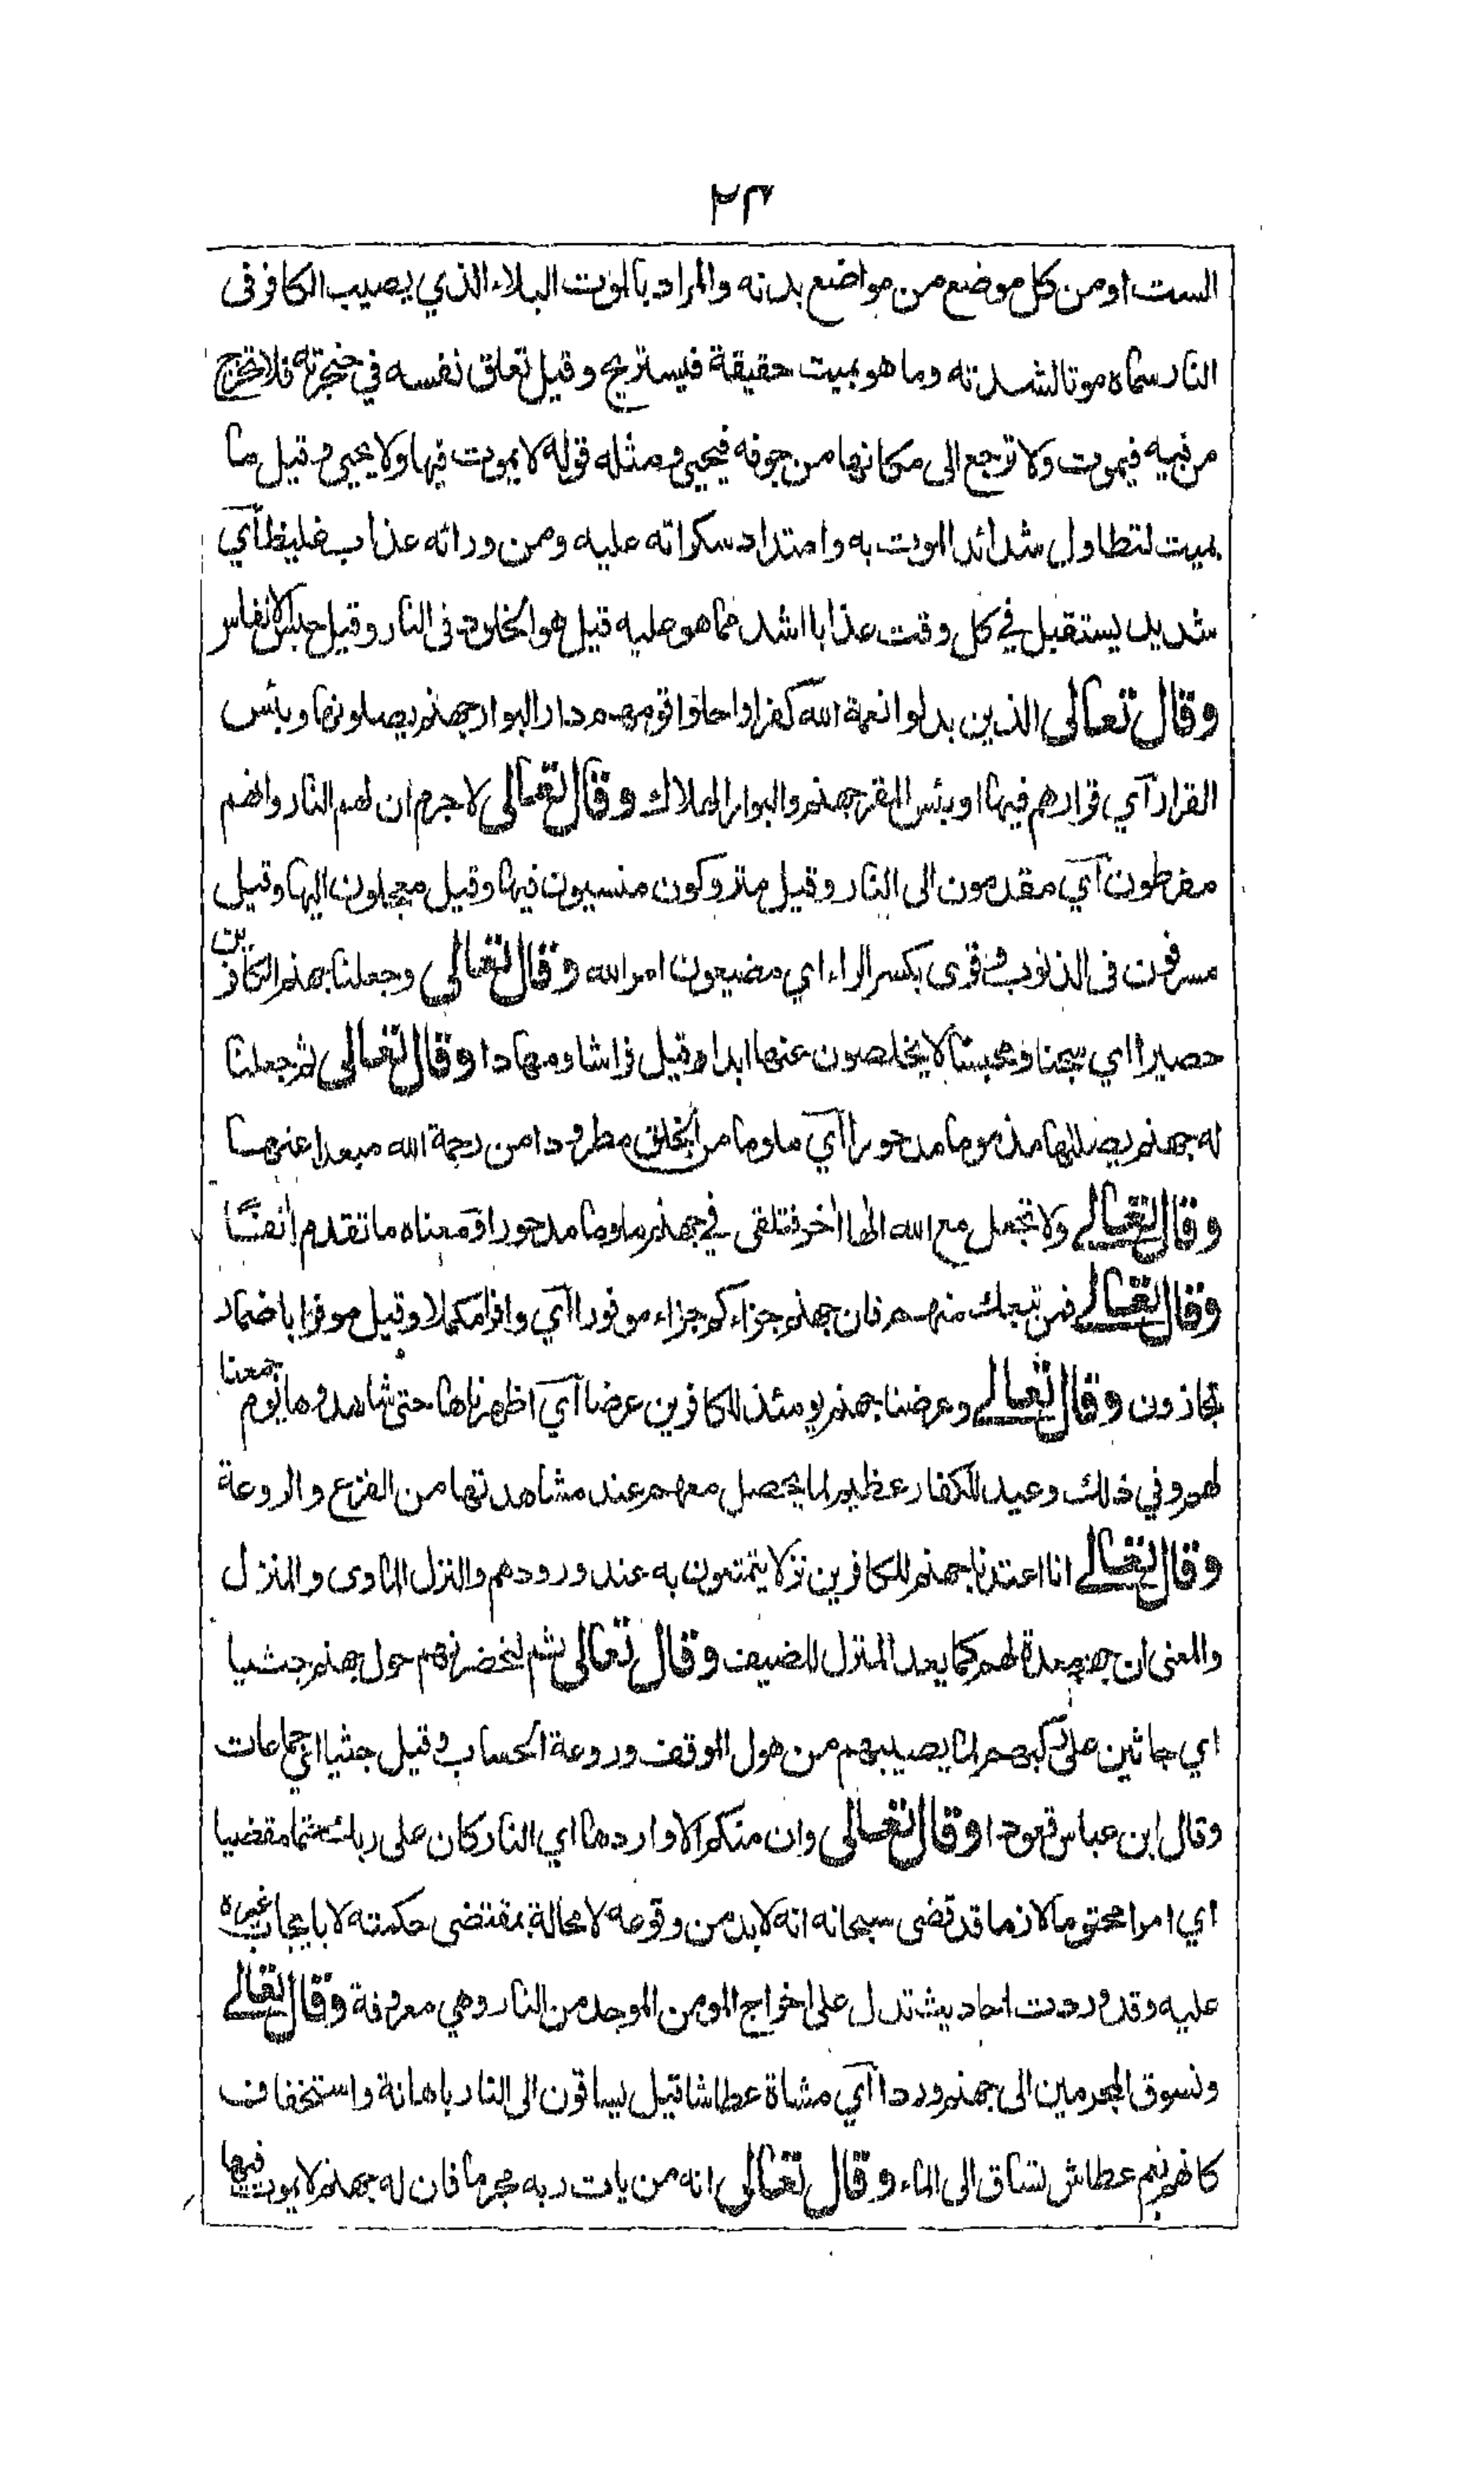 ٢٣
الست او من كل موضع من مواضع بدنه والمراد بالموت البلاء الذي يصيب الكافر فى
النار سماه موتا لشدته وما هو بميت حقيقة فيستريح وقيل تعلق نفسه في حنجرته فلا تخرج
من فيه فيموت ولا ترجع الى مكانها من جوفه فيحيى ومثله قوله لا يموت فيها ولا يحيى وقيل ما
بميت لتطاول شدائد الموت به وامتداد سكراته عليه ومن ورائه عذاب غليظ آي
شديد يستقبل في كل وقت عذابا اشد مما هو عليه قيل هو الخلود فى النار وقيل حبس الانفاس
وقال تعالى الذين بدلوا نعمة الله كفرا واحلوا قومهم دار البوار جهنم يصلونها وبئس
القرار آي قرارهم فيها او بئس المقر جهنم والبوار الهلاك وقال تعالى لا جرم ان لهم النار وانهم
مفرطون آي مقدمون الى النار وقيل متروكون منسيون فيها وقيل معجلون اليها وقيل
مسرفون فى الذنوب وقرى بكسر الراء اي مضيعون امر الله وقال تعالى وجعلنا جهنم للكافرين
حصيرا اي سجنا ومحبسا لا يخلصون عنها ابدا وقيل فراشا ومهادا وقال تعالى ثم جعلنا
له جهنم يصلاها مذموما مدحورا آي ملوما من الخلق مطرودا من رحمة الله مبعدا عنها
وقال تعالى ولا تجعل مع الله الها اخر فتلقى في جهنم ملوما مدحورا ومعناه ما تقدم انفا
وقال تعالى فمن تبعك منهم فان جهنم جزاءكم جزاء موفورا آي وافرا مكملا وقيل موفرا باضمار
تجازون وقال تعالى وعرضنا جهنم يومئذ للكافرين عرضا آي اظهرناها حتى شاهدوها يوم جمعنا
لهم وفي ذلك وعيد للكفار عظيم لما يحصل معهم عند مشاهدتها من الفزع والروعة
وقال تعالى انا اعتدنا جهنم للكافرين نزلا يتمتعون به عند ورودهم والنزل الماوى والمنزل
والمعنى ان جهنم معدة لهم كما يعد المنزل للضيف وقال تعالى ثم لنحضرنهم حول جهنم جثيا
اي جاثين على ركبهم لما يصيبهم من هول الموقف وروعة الحساب وقيل جثيا اي جماعات
وقال ابن عباس قعودا وقال تعالى وان منكم الا واردها اي النار كان على ربك حتما مقضيا
اي امرا محتوما لازما قد قضى سبحانه انه لا بد من وقوعه لا محالة بمقتضى حكمته لا بايجاب غيره
عليه وقد وردت احاديث تدل على اخراج المومن الموحد من النار وهي معروفة وقال تعالى
ونسوق المجرمين الى جهنم وردا آي مشاة عطاشا قيل يساقون الى النار باهانة واستخفاف
كانهم نعم عطاش تساق الى الماء وقال تعالى انه من يات ربه مجرما فان له جهنم لا يموت فيها